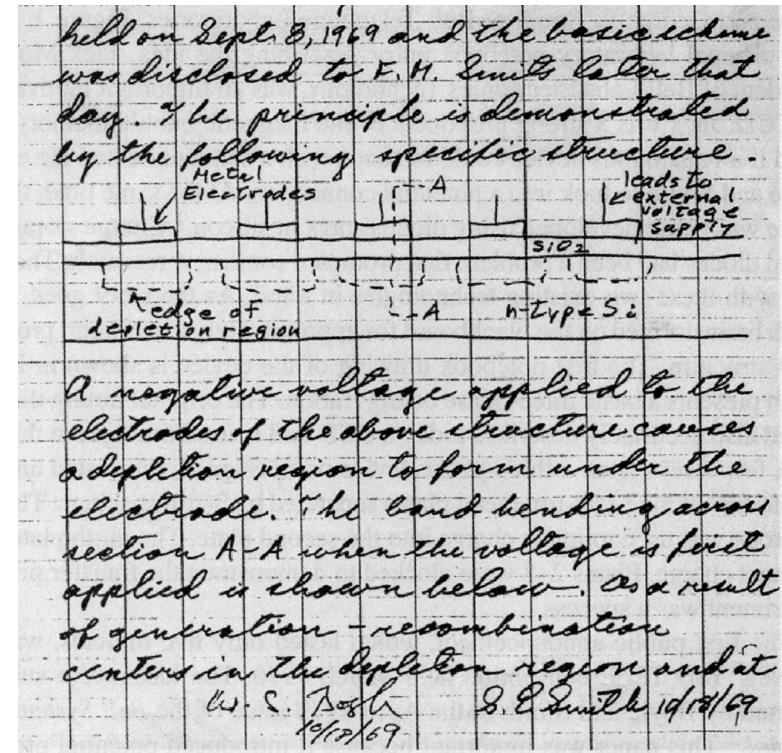 held on Sept. 8, 1969 and the basic scheme
was disclosed to F. M. Smits later that
day. The principle is demonstrated
by the following specific structure.
Metal
Electrodes
A
leads to
external
voltage
supply
SiO2
edge of
depletion region
A
n-type Si
A negative voltage applied to the
electrodes of the above structure causes
a depletion region to form under the
electrode. The band bending across
section A-A when the voltage is first
applied is shown below. As a result
of generation - recombination
centers in the depletion region and at
W. S. Boyle
10/18/69
G. E. Smith 10/18/69